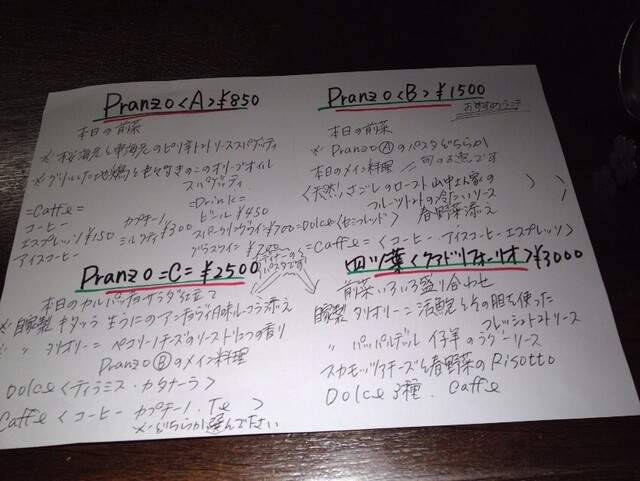 Pranzo〈A〉¥850
本日の前菜
※ 桜海老と東海老のピリ辛トマトソーススパゲッティ
※ グリルした地鶏と色々きのこのオリーブオイル
スパゲッティ
=Caffe=
コーヒー
エスプレッソ ¥150
アイスコーヒー
カプチーノ
ミルクティ ¥300
=Drink=
ビール ¥450
スパークリングワイン ¥700
グラスワイン
Pranzo〈B〉¥1500
おすすめランチ
本日の前菜
※ Pranzo Ⓐのパスタどちらか
本日のメイン料理 旬のお魚です
〈天然〉さごしのロースト 山中さん家の
フルーツトマトの冷たいソース
春野菜添え
=Dolce〈セミフレッド〉
=Caffe=〈コーヒー・アイスコーヒー・エスプレッソ〉
Pranzo=C=¥2500
ディナーの
パスタです
本日のカルパッチョ サラダ仕立て
※ 自家製 キタッラ 生うにのアンチョビ風味 ルーコラ添え
※ 〃 タリオリーニ ペコリーノチーズのソース トリュフの香り
Pranzo Ⓑのメイン料理
Dolce〈ティラミス・カタラーナ〉
Caffe〈コーヒー カプチーノ・Te〉
※どちらか選んで下さい
四ツ葉〈クアドリフォーリオ〉¥3000
前菜いろいろ盛り合わせ
自家製 タリオリーニ 活鮑とその肝を使った
フレッシュトマトソース
〃 パッパルデル 仔羊のラグーソース
スカモッツァチーズと春野菜のRisotto
Dolce 3種. Caffe